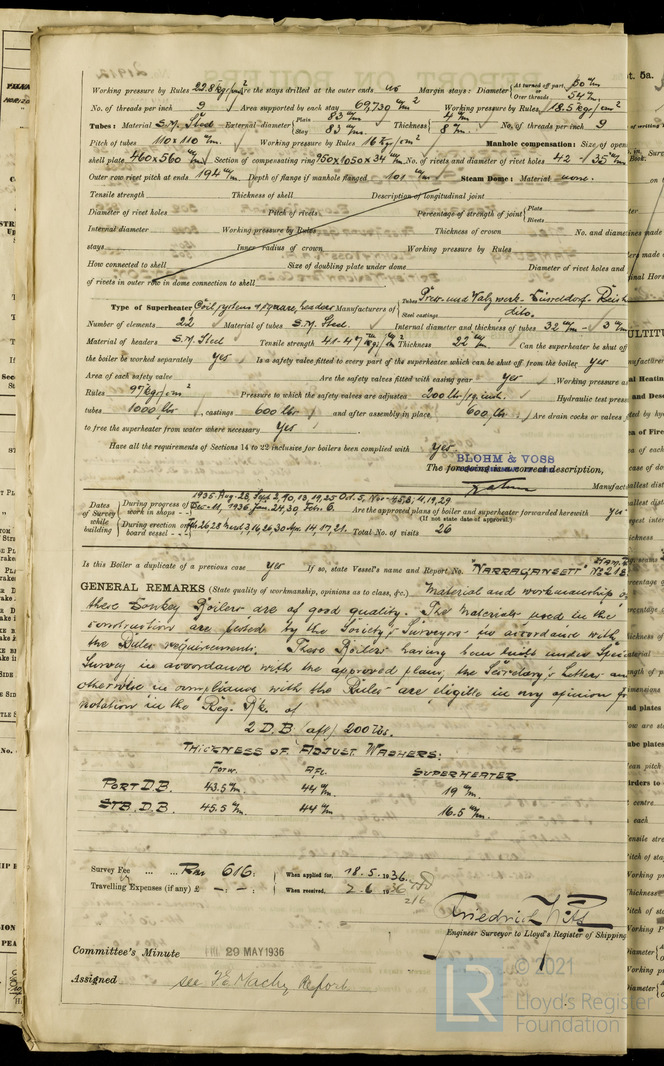 Working pressure by Rules 22.8 kg/cm² Are the stays drilled at the outer ends no Margin stays: Diameter { At turned off part, 60 m/m Over threads 54 m/m
No. of threads per inch 9 Area supported by each stay 69,730 m/m² Working pressure by Rules 18.5 kg/cm²
Tubes: Material S.M. Steel External diameter { Plain 83 m/m Stay 83 m/m Thickness { 4 m/m 8 m/m No. of threads per inch 9
Pitch of tubes 110 x 110 m/m Working pressure by Rules 16 kg/cm² Manhole compensation: Size of open
shell plate 460x560 m/m Section of compensating ring 950x1050x34 m/m No. of rivets and diameter of rivet holes 42 - 35 m/m
Outer row rivet pitch at ends 194 m/m Depth of flange if manhole flanged 101 m/m Steam Dome: Material none.
Tensile strength Thickness of shell Description of longitudinal joint
Diameter of rivet holes Pitch of rivets Percentage of strength of joint { Plate Rivets
Internal diameter Working pressure by Rules Thickness of crown No. and diameter
stays Inner radius of crown Working pressure by Rules
How connected to shell Size of doubling plate under dome Diameter of rivet holes and
of rivets in outer row in dome connection to shell
Type of Superheater Coil system & square headers Manufacturers of { Tubes Press- und Walzwerk - Düsseldorf - Reish Steel castings dito.
Number of elements 22 Material of tubes S.M. Steel. Internal diameter and thickness of tubes 32 m/m - 3 m/m
Material of headers S.M. Steel Tensile strength 41-47 kg/m/m² Thickness 22 m/m Can the superheater be shut off
the boiler be worked separately yes Is a safety valve fitted to every part of the superheater which can be shut off from the boiler yes
Area of each safety valve Are the safety valves fitted with easing gear yes Working pressure as
Rules 97 kg/cm² Pressure to which the safety valves are adjusted 200 lbs/sq.inch. Hydraulic test press
tubes 1000 lbs, castings 600 lbs and after assembly in place 600 lbs Are drain cocks or valves
to free the superheater from water where necessary yes
Have all the requirements of Sections 14 to 22 inclusive for boilers been complied with yes
BLOHM & VOSS
The foregoing is a correct description,
Manufact
Dates of Survey while building { During progress of work in shops - - 1935 Aug. 28, Sept 3, 10, 13, 19, 25 Oct. 5, Nov. 4, 19, 29 Dec. 11, 1936 Jan. 24, 30, Feb. 6. Are the approved plans of boiler and superheater forwarded herewith yes
(If not state date of approval.)
During erection on board vessel - - - Feb 26 28 March 3, 16, 26, 30 Apr. 14, 17, 21. Total No. of visits 26
Is this Boiler a duplicate of a previous case yes If so, state Vessel's name and Report No. "NARRAGANSETT" Ham. No 218
GENERAL REMARKS (State quality of workmanship, opinions as to class, &c.) Material and workmanship o
these Donkey Boilers are of good quality. The materials used in the
construction are tested by the Society's Surveyors in accordance with
the Rules requirements. These Boilers having been built under Spec
Survey in accordance with the approved plans, the Secretary's Letters an
otherwise in compliance with the Rules are eligible in my opinion f
notation in the Reg. Bk. of
2 D.B (aft) 200 lbs.
THICKNESS OF ADJUST. WASHERS:
Forw. Aft. SUPERHEATER.
PORT D.B. 43.5 m/m. 44 m/m. 19 m/m.
STB. D.B. 45.5 m/m. 44 m/m 16.5 m/m.
Survey Fee ... ... Rm 616: When applied for, 18.5.1936.
Travelling Expenses (if any) £ -: -: When received, 2-6 1936
2/6
Friedrich
Engineer Surveyor to Lloyd's Register of Shipping
Committee's Minute FRI. 29 MAY 1936
Assigned see F.E. Machy Report
© 2021
LR Lloyd's Register
Foundation